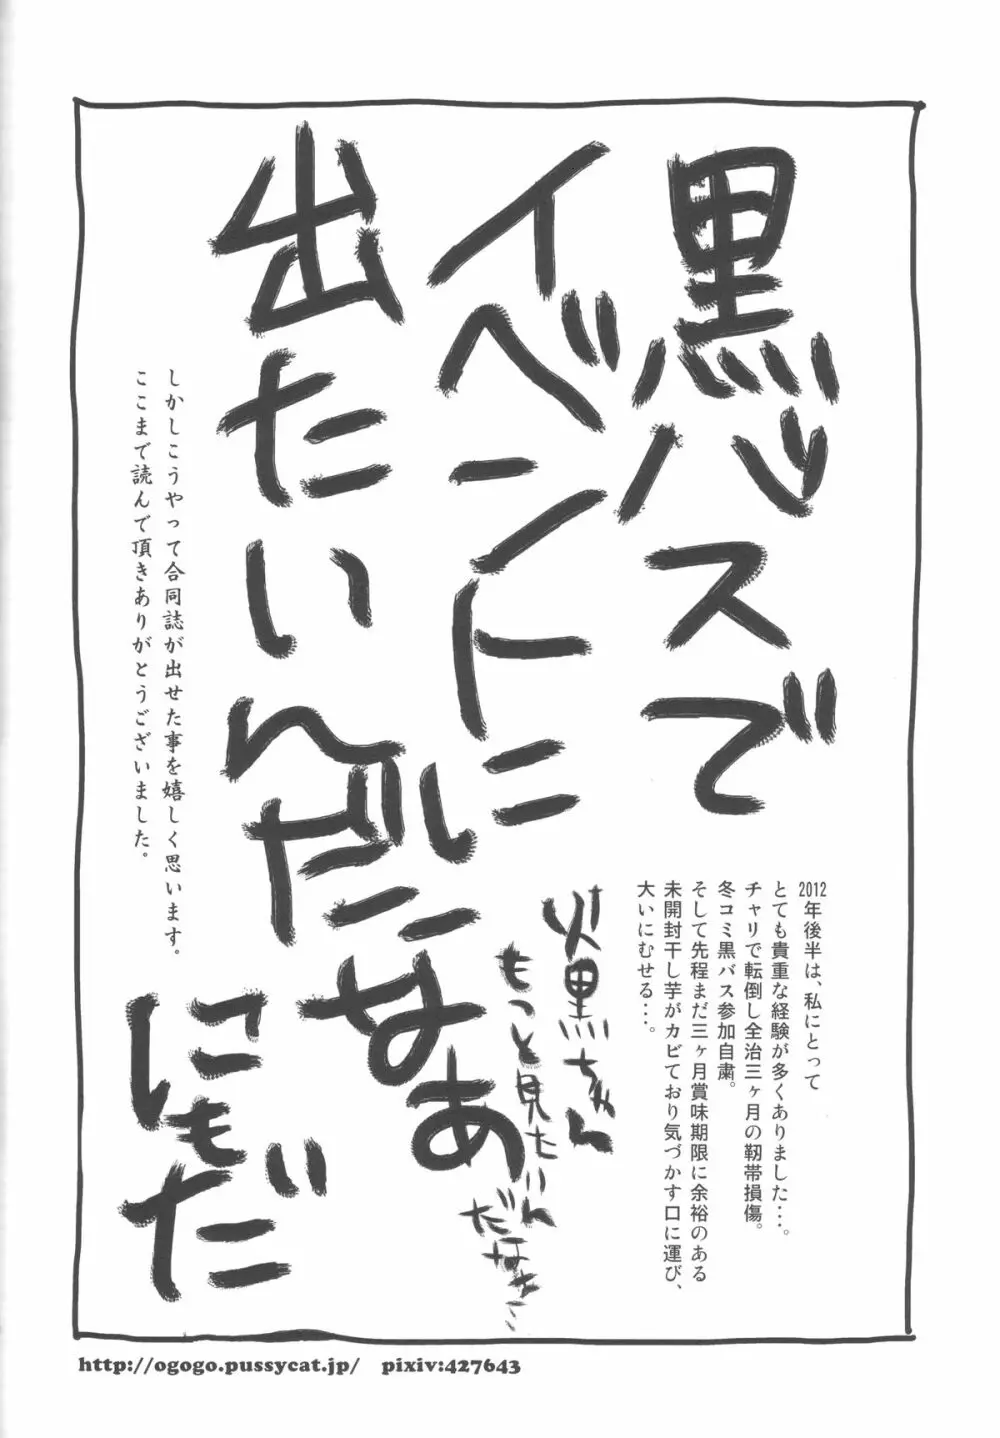 黒バスで
イベントに
出たいんだなあ
にもだ
火黒ちゃん
もっと見たいん
だなあ…
2012年後半は、私にとって
とても貴重な経験が多くありました・・・。
チャリで転倒し全治三ヶ月の靭帯損傷。
冬コミ黒バス参加自粛。
そして先程まだ三ヶ月賞味期限に余裕のある
未開封干し芋がカビており気づかす口に運び、
大いにむせる・・・。
しかしこうやって合同誌が出せた事を嬉しく思います。
ここまで読んで頂きありがとうございました。
http://ogogo.pussycat.jp/ pixiv:427643